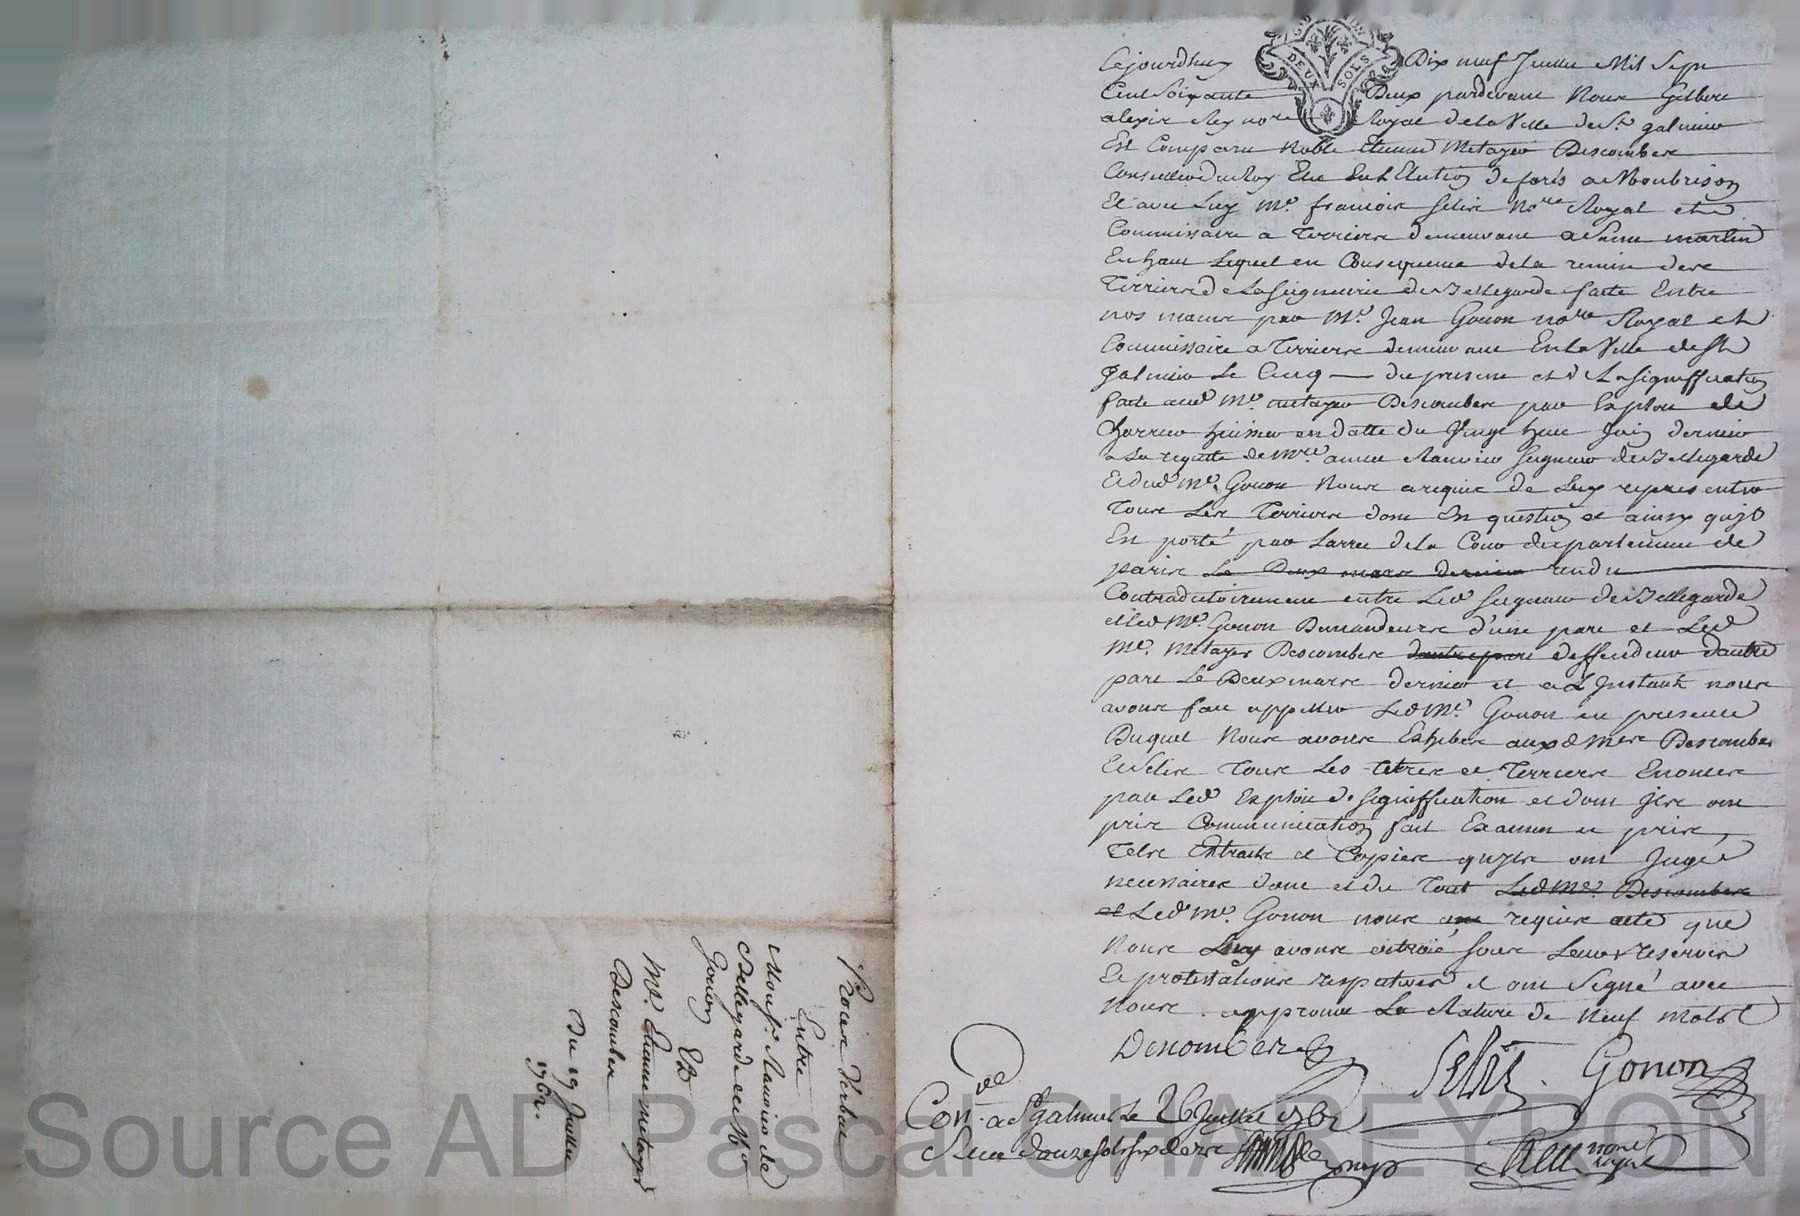 DEUX SOLS
Cejourdhuy Dix neuf Juillet Mil Sept
Cent Soixante Deux pardevant Nous Gilbert
alexis Rey no.re Royal de la Ville de S.t galmier
Est Comparu Noble Etienne Metayer Descombes
Conseiller du Roy Elu En L'Election de forés a Monbrison
Et avec Luy M.e francois Selis No.re Royal et
Commissaire a Terriers demeurant a Saint martin
En haut Lequel en Consequence de la remise des
Terriers de La Seigneurie de Bellegarde faite Entre
nos mains par M.e Jean Gonon no.re Royal et
Commissaire a Terriers demeurant En la Ville de St
galmier Le Cinq du present et de La Signiffication
faite aud M.e metayer Descombes par Exploit de
huissier en datte du Vingt huit Juin dernier
a La requette de M.re Ranvier Seigneur de Bellegarde
Et dud M.e Gonon Nous a requis de Luy representer
Tous Les Terriers dont En question et ainsy qu'il
Est porté par Larret de la Cour du parlement de
paris Le Deux mars dernier rendu
Contradictoirement entre Led Seigneur de Bellegarde
et led M.e Gonon Demandeurs d'une part et Led
M.e Metayer Descombes dautre part deffendeur dautre
part Le Deux mars dernier et a L'Instant nous
avons fait appeller Led M.e Gonon en presence
Duquel Nous avons Exhibés auxd M.es Descombes
Et Selis Tous Les Titres et Terriers Enoncés
par Led Exploit de Signiffication et dont ils ont
pris Communication fait Examen et pris
Tels Extraits et Copies qu'ils ont Jugés
necessaires dont et du Tout Led M.e Descombes
et Led M.e Gonon nous ont requis acte que
Nous Luy avons octroié sous Leurs reserves
Et protestations respectives et ont Signé avec
Nous approuvé La Rature de Neuf mots
Descombes Selis Gonon
Con.lé a S.t galmier Le 26 Juillet 1762
Receu douze sols six deniers
Rey no.re royal
Procès Verbal
Entre
Mons.r Ranvier de
Bellegarde et M.e
Gonon
Et
M.e Etienne metayer
Descombes
Du 19 Juillet
1762.
Source AD Pascal CHAREYRON